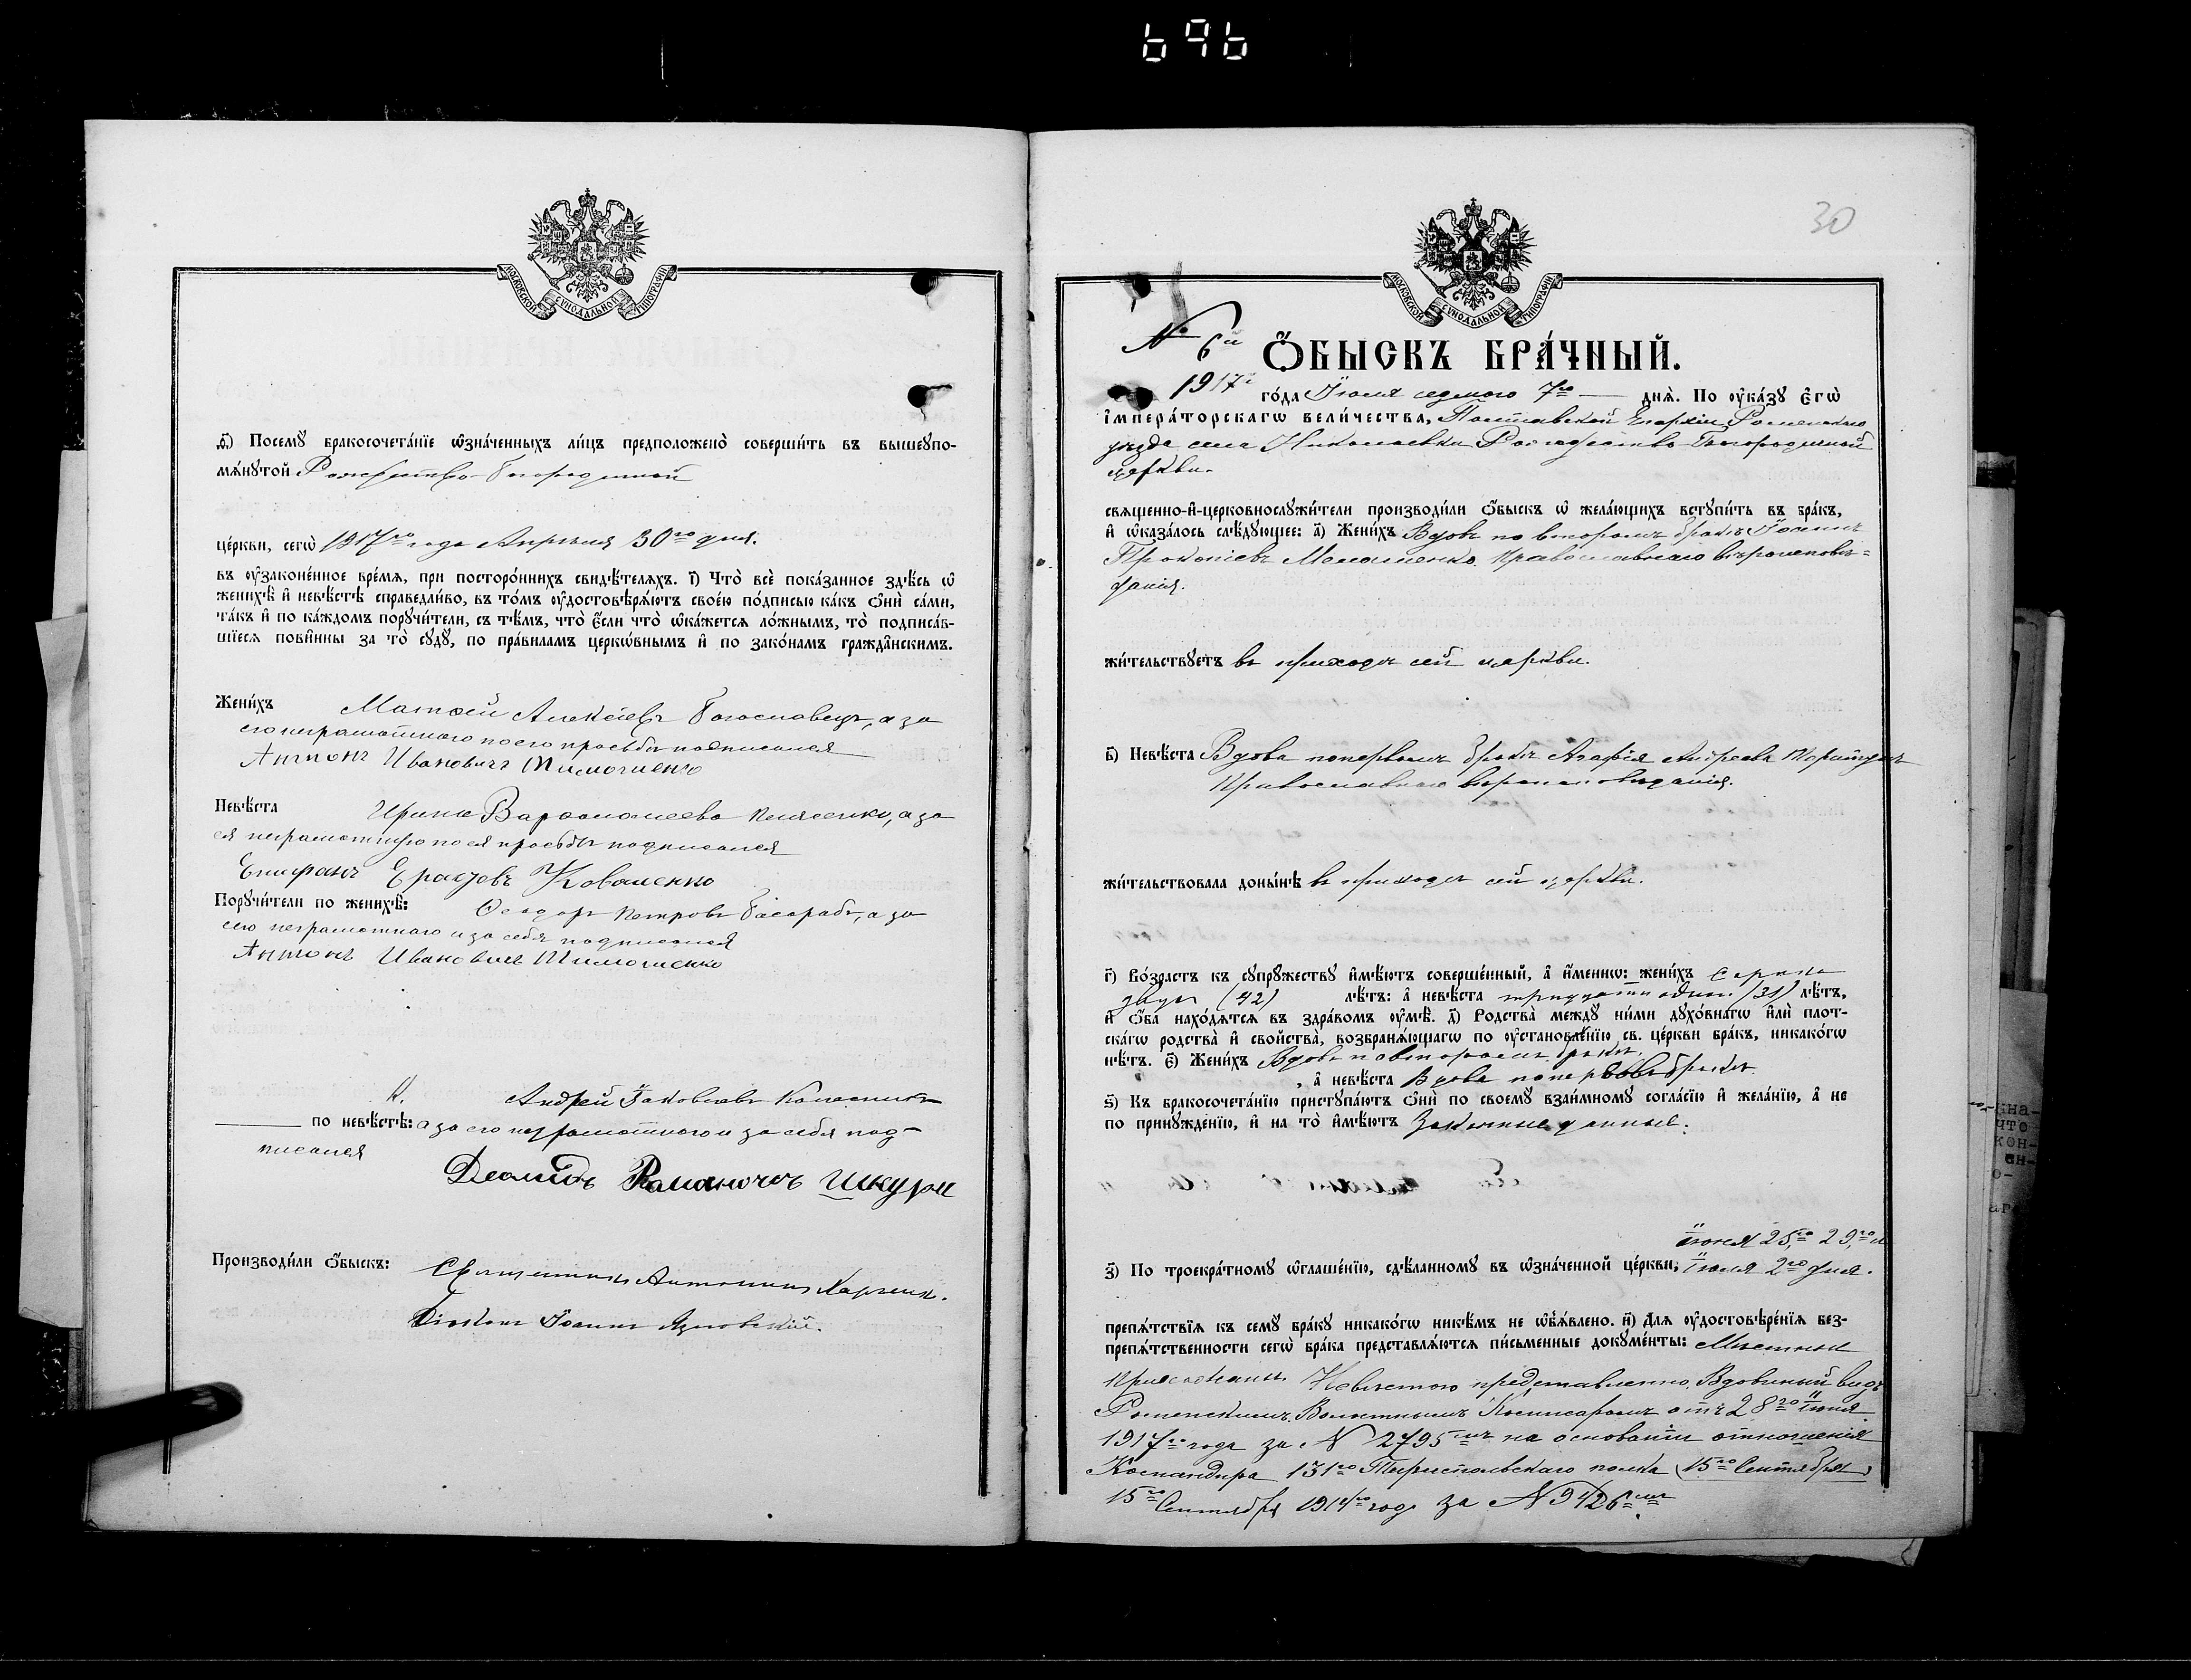 696
МОСКОВСКОЙ СѴНОДАЛЬНОЙ ТИПОГРАФІИ
ѳ҃) Посемꙋ̀ бракосочета́нїе ѡ҆зна́ченныхъ ли́цъ предположено̀ соверши́ть въ вышеꙋпо-
мѧ́нꙋтой Рождество-Богородичной
це́ркви, сегѡ̀ 1917го года Апрѣля 30го дня.
въ ᲂу҆зако́ненное вре́мѧ, при посторо́ннихъ свидѣ́телѧхъ. і҃) Что̀ всѐ пока́занное здѣ́сь ѡ҆
женихѣ̀ и҆ невѣ́стѣ справедли́во, въ то́мъ ᲂу҆достовѣрѧ́ютъ свое́ю по́дписью ка́къ ѻ҆нѝ са́ми,
та́къ и҆ по ка́ждомъ порꙋчи́тели, съ тѣ́мъ, что̀ є҆́сли что̀ ѡ҆ка́жетсѧ ло́жнымъ, то̀ подписа́в-
шїесѧ пови́нны за то̀ сꙋдꙋ̀, по пра́виламъ церкѡ́внымъ и҆ по зако́намъ гражда́нскимъ.
Жени́хъ Матѳей Алексіевъ Богославецъ, а за
его неграмотного по его просьбѣ подписался
Антонъ Ивановичъ Тимошенко
Невѣ́ста Ирина Варѳоломеева, а за
ея неграмотную по ея просьбѣ подписался
Епифанъ Коваленко
Порꙋчи́тели по женихѣ̀: Ѳеодоръ Петровъ Басарабъ, а за
сего неграмотного и за себя подписался
Антонъ Ивановичъ Тимошенко
Андрей Іаковлевъ Колесникъ
по невѣ́стѣ: а за его неграмотного и за себя под-
писался
Деомидъ Романочъ Шкура
Производи́ли ѻ҆́быскъ: Священникъ Антонинъ
Діаконъ Іоаннъ
30
МОСКОВСКОЙ СѴНОДАЛЬНОЙ ТИПОГРАФІИ
№ 6й Ѻ҆́БЫСКЪ БРА́ЧНЫЙ.
1917 го́да Іюля седьмого 7го дня̀. По ᲂу҆ка́зꙋ Є҆гѡ̀
і҆мпера́торскагѡ вели́чества, Полтавской Епархіи Роменскаго
уѣзда села Николаевки Рождество-Богородичной
церкви.
свѧщенно-и҆-церковнослꙋжи́тели производи́ли ѻ҆́быскъ ѡ҆ жела́ющихъ встꙋпи́ть въ бра́къ,
и҆ ѡ҆каза́лось слѣ́дꙋющее: а҃) Жени́хъ Вдовъ по второмъ бракѣ Іосифъ
Прокопіевъ Православнаго вѣроисповѣ=
данія.
жи́тельствꙋетъ въ приходѣ сей церкви.
в҃) Невѣ́ста Вдова по первомъ бракѣ Агафія Андреева
Православнаго вѣроисповѣданія.
жи́тельствовала доны́нѣ въ приходѣ сей церкви.
г҃) Во́зрастъ къ сꙋпрꙋ́жествꙋ и҆мѣ́ютъ соверше́нный, а҆ и҆́меннѡ: жени́хъ сорока
двухъ (42) лѣ́тъ: а҆ невѣ́ста тридцати одного (31) лѣ́тъ,
и҆ ѻ҆́ба нахо́дѧтсѧ въ здра́вомъ ᲂу҆мѣ̀. д҃) Родства̀ междꙋ̀ ни́ми дꙋхо́внагѡ и҆лѝ плот-
ска́гѡ родства̀ и҆ сво́йства, возбранѧ́ющагѡ по ᲂу҆становле́нїю св. це́ркви бра́къ, никако́гѡ
нѣ́тъ. є҃) Жени́хъ Вдовъ по второмъ бракѣ,
, а҆ невѣ́ста Вдова по первомъ бракѣ.
ѕ҃) Къ бракосочета́нїю пристꙋпа́ютъ ѻ҆нѝ по своемꙋ̀ взаи́мномꙋ согла́сїю и҆ жела́нїю, а҆ не
по принꙋжде́нїю, и҆ на то̀ и҆мѣ́ютъ Законныя данныя.
Іюня 25го, 29го и
з҃) По троекра́тномꙋ ѡ҆глаше́нїю, сдѣ́ланномꙋ въ ѡ҆зна́ченной це́ркви, Іюля 2го дня.
препѧ́тствїѧ къ семꙋ̀ бра́кꙋ никако́гѡ никѣ́мъ не ѡ҆б̾ѧ́влено. и҃) Длѧ ᲂу҆достовѣре́нїѧ без-
препѧ́тственности сегѡ̀ бра́ка представлѧ́ютсѧ пи́сьменные докꙋме́нты: Мѣстные
прихожане. Невѣстою представленно Вдовиный видъ
Роменскимъ Волостнымъ Комиссаромъ отъ 28го Іюня
1917го года за № 2795мъ на основаніи отношенія
Командира 131го Тираспольскаго полка (15го Сентября)
15го Сентября 1914го года за № 9426мъ.